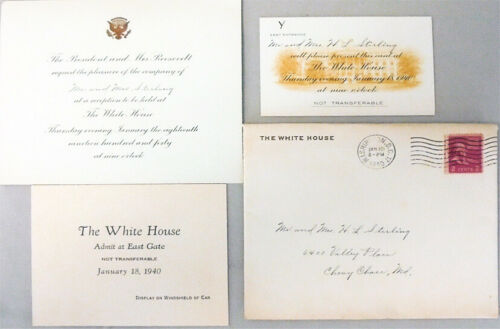 The President and Mrs. Roosevelt
request the pleasure of the company of
Mr and Mrs Sterling
at a reception to be held at
The White House
Thursday evening January the eighteenth
nineteen hundred and forty
at nine o'clock
Y
EAST ENTRANCE
Mr and Mrs H L Sterling
will please present this card at
The White House
Thursday evening January 18, 1940
at nine o'clock
NOT TRANSFERABLE
The White House
Admit at East Gate
NOT TRANSFERABLE
January 18, 1940
DISPLAY ON WINDSHIELD OF CAR
THE WHITE HOUSE
JAN 10
6-PM
1940
2 CENTS 2
Mr and Mrs H L Sterling
6400 Valley Place
Chevy Chase, Md.